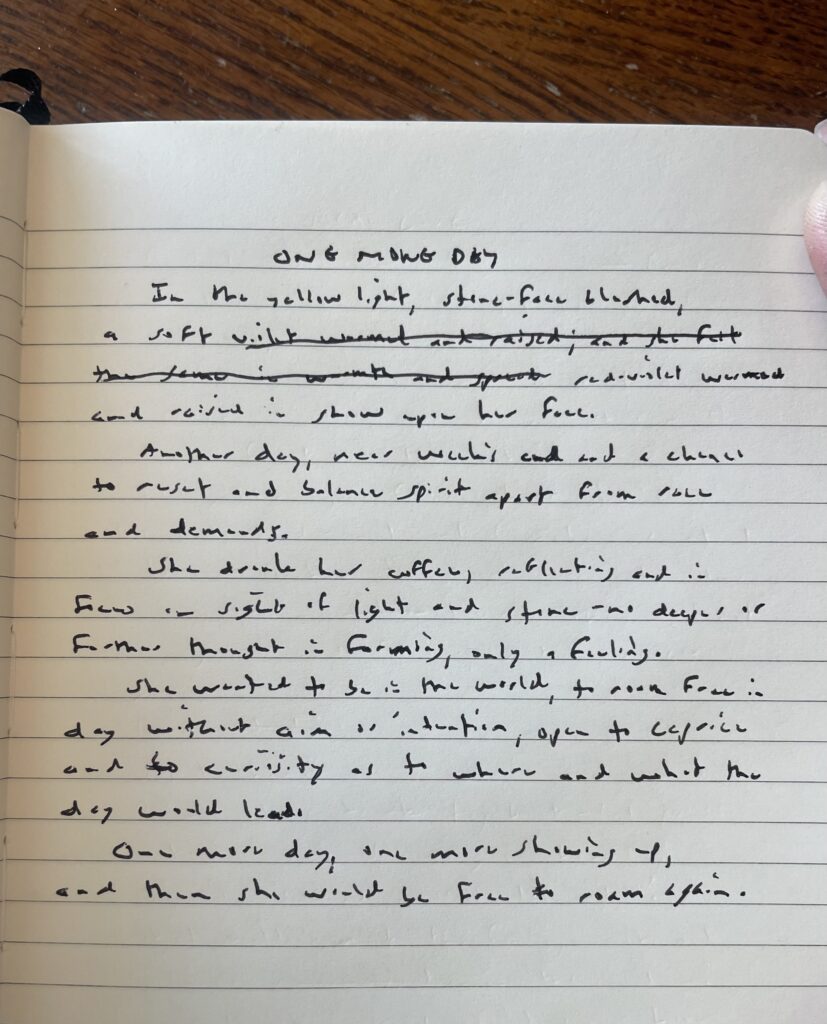 ONE MORE DAY
In the yellow light, stone-face blushed,
a soft violet warmed and raised; and she felt
the same in warmth and red-violet warmed
and raised in show upon her face.
Another day, near week's end and a chance
to reset and balance spirit apart from role
and demands.
She drank her coffee, reflecting and in
focus on sight of light and stone - no deeper or
further thought in forming, only a feeling.
She wanted to be in the world, to roam free in
day without aim or intention, open to caprice
and to curiosity as to where and what the
day would lead.
One more day, one more showing up,
and then she would be free to roam again.